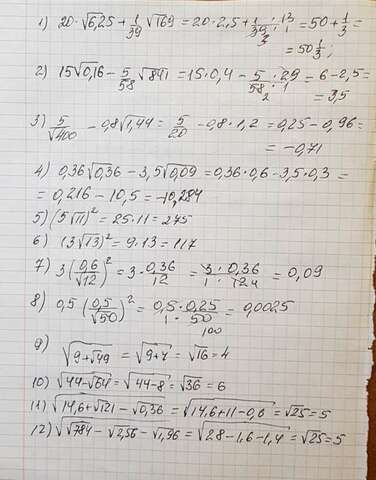 1) 20·√6,25 + 1/39 √169 = 20·2,5 + 1/39 · 13/1 = 50 + 1/3 =
3
= 50 1/3;
2) 15√0,16 − 5/58 √841 = 15·0,4 − 5/58 · 29/1 = 6−2,5 =
2
= 3,5
3) 5/√400 − 0,8√1,44 = 5/20 − 0,8·1,2 = 0,25 − 0,96 =
= −0,71
4) 0,36√0,36 − 3,5√0,09 = 0,36·0,6 − 3,5·0,3 =
= 0,216 − 10,5 = −10,284
5) (5√11)² = 25·11 = 275
6) (3√13)² = 9·13 = 117
7) 3(0,6/√12)² = 3·0,36/12 = 3·0,36/1·12 4 = 0,09
8) 0,5(0,5/√50)² = 0,5·0,25/1·50 = 0,0025
100
9) √(9+√49) = √(9+7) = √16 = 4
10) √(44−√64) = √(44−8) = √36 = 6
11) √(14,6+√121−√0,36) = √(14,6+11−0,6) = √25 = 5
12) √(√784−√2,56−√1,96) = √(28−1,6−1,4) = √25 = 5